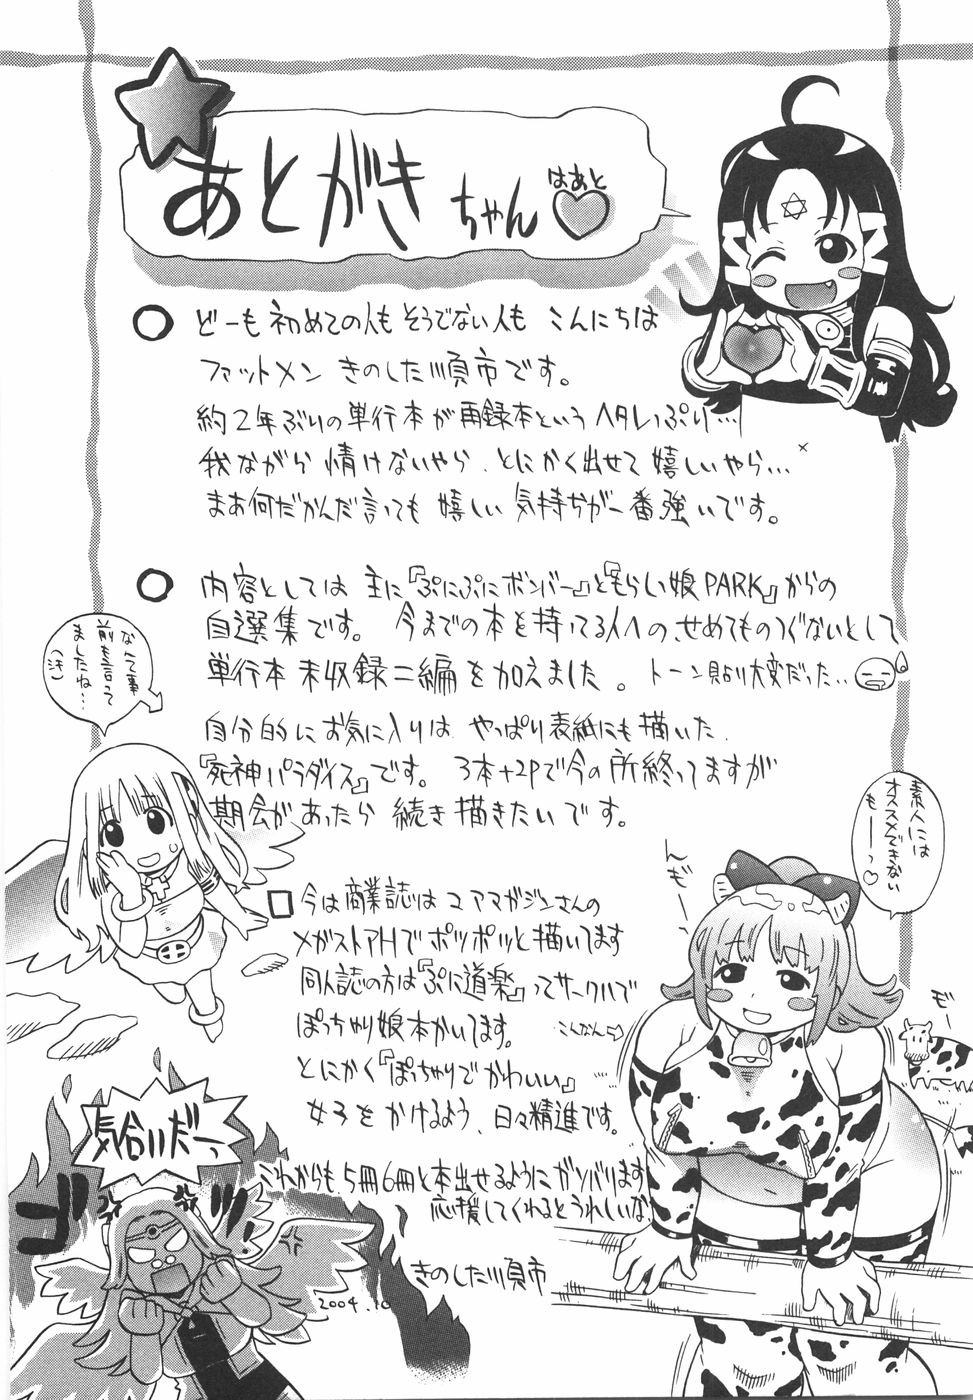 あとがきちゃん♡
はあと
○ どーも 初めての人も そうでない人も こんにちは
ファットメン きのした順市です。
約2年ぶりの単行本が再録本という ヘタレっぷり…
我ながら 情けないやら、とにかく出せて 嬉しいやら…
まあ何だかんだ言っても 嬉しい 気持ちが一番強いです。
○ 内容としては 主に『ぷにぷにボンバー』と『もらい娘PARK』からの
自選集です。 今までの本を持ってる人への、せめてものつぐないとして
単行本 未収録二編を加えました。 トーン貼り大変だった‥
自分的に お気に入りは やっぱり表紙にも描いた
『死神パラダイス』です。 3本+2Pで今の所終ってますが
期会があったら 続き描きたいです。
なんて事
前も言って
ましたね…
(汗)
素人には
オススメできない
もーーっ♡
んぎー
モ゛ー
□ 今は商業誌は コアマガジンさんの
メガストアHでポツポツと描いてます
同人誌の方は『ぷに道楽』ってサークルで
ぽっちゃり娘本かいてます。
こんなん⇨
とにかく『ぽっちゃりでかわいい』
女子をかけるよう、日々精進です。
これからも5冊6冊と本出せるようにガンバリます
応援してくれるとうれしいな
気合いだーっ
ゴ
ゴッ
きのした順市
2004.10